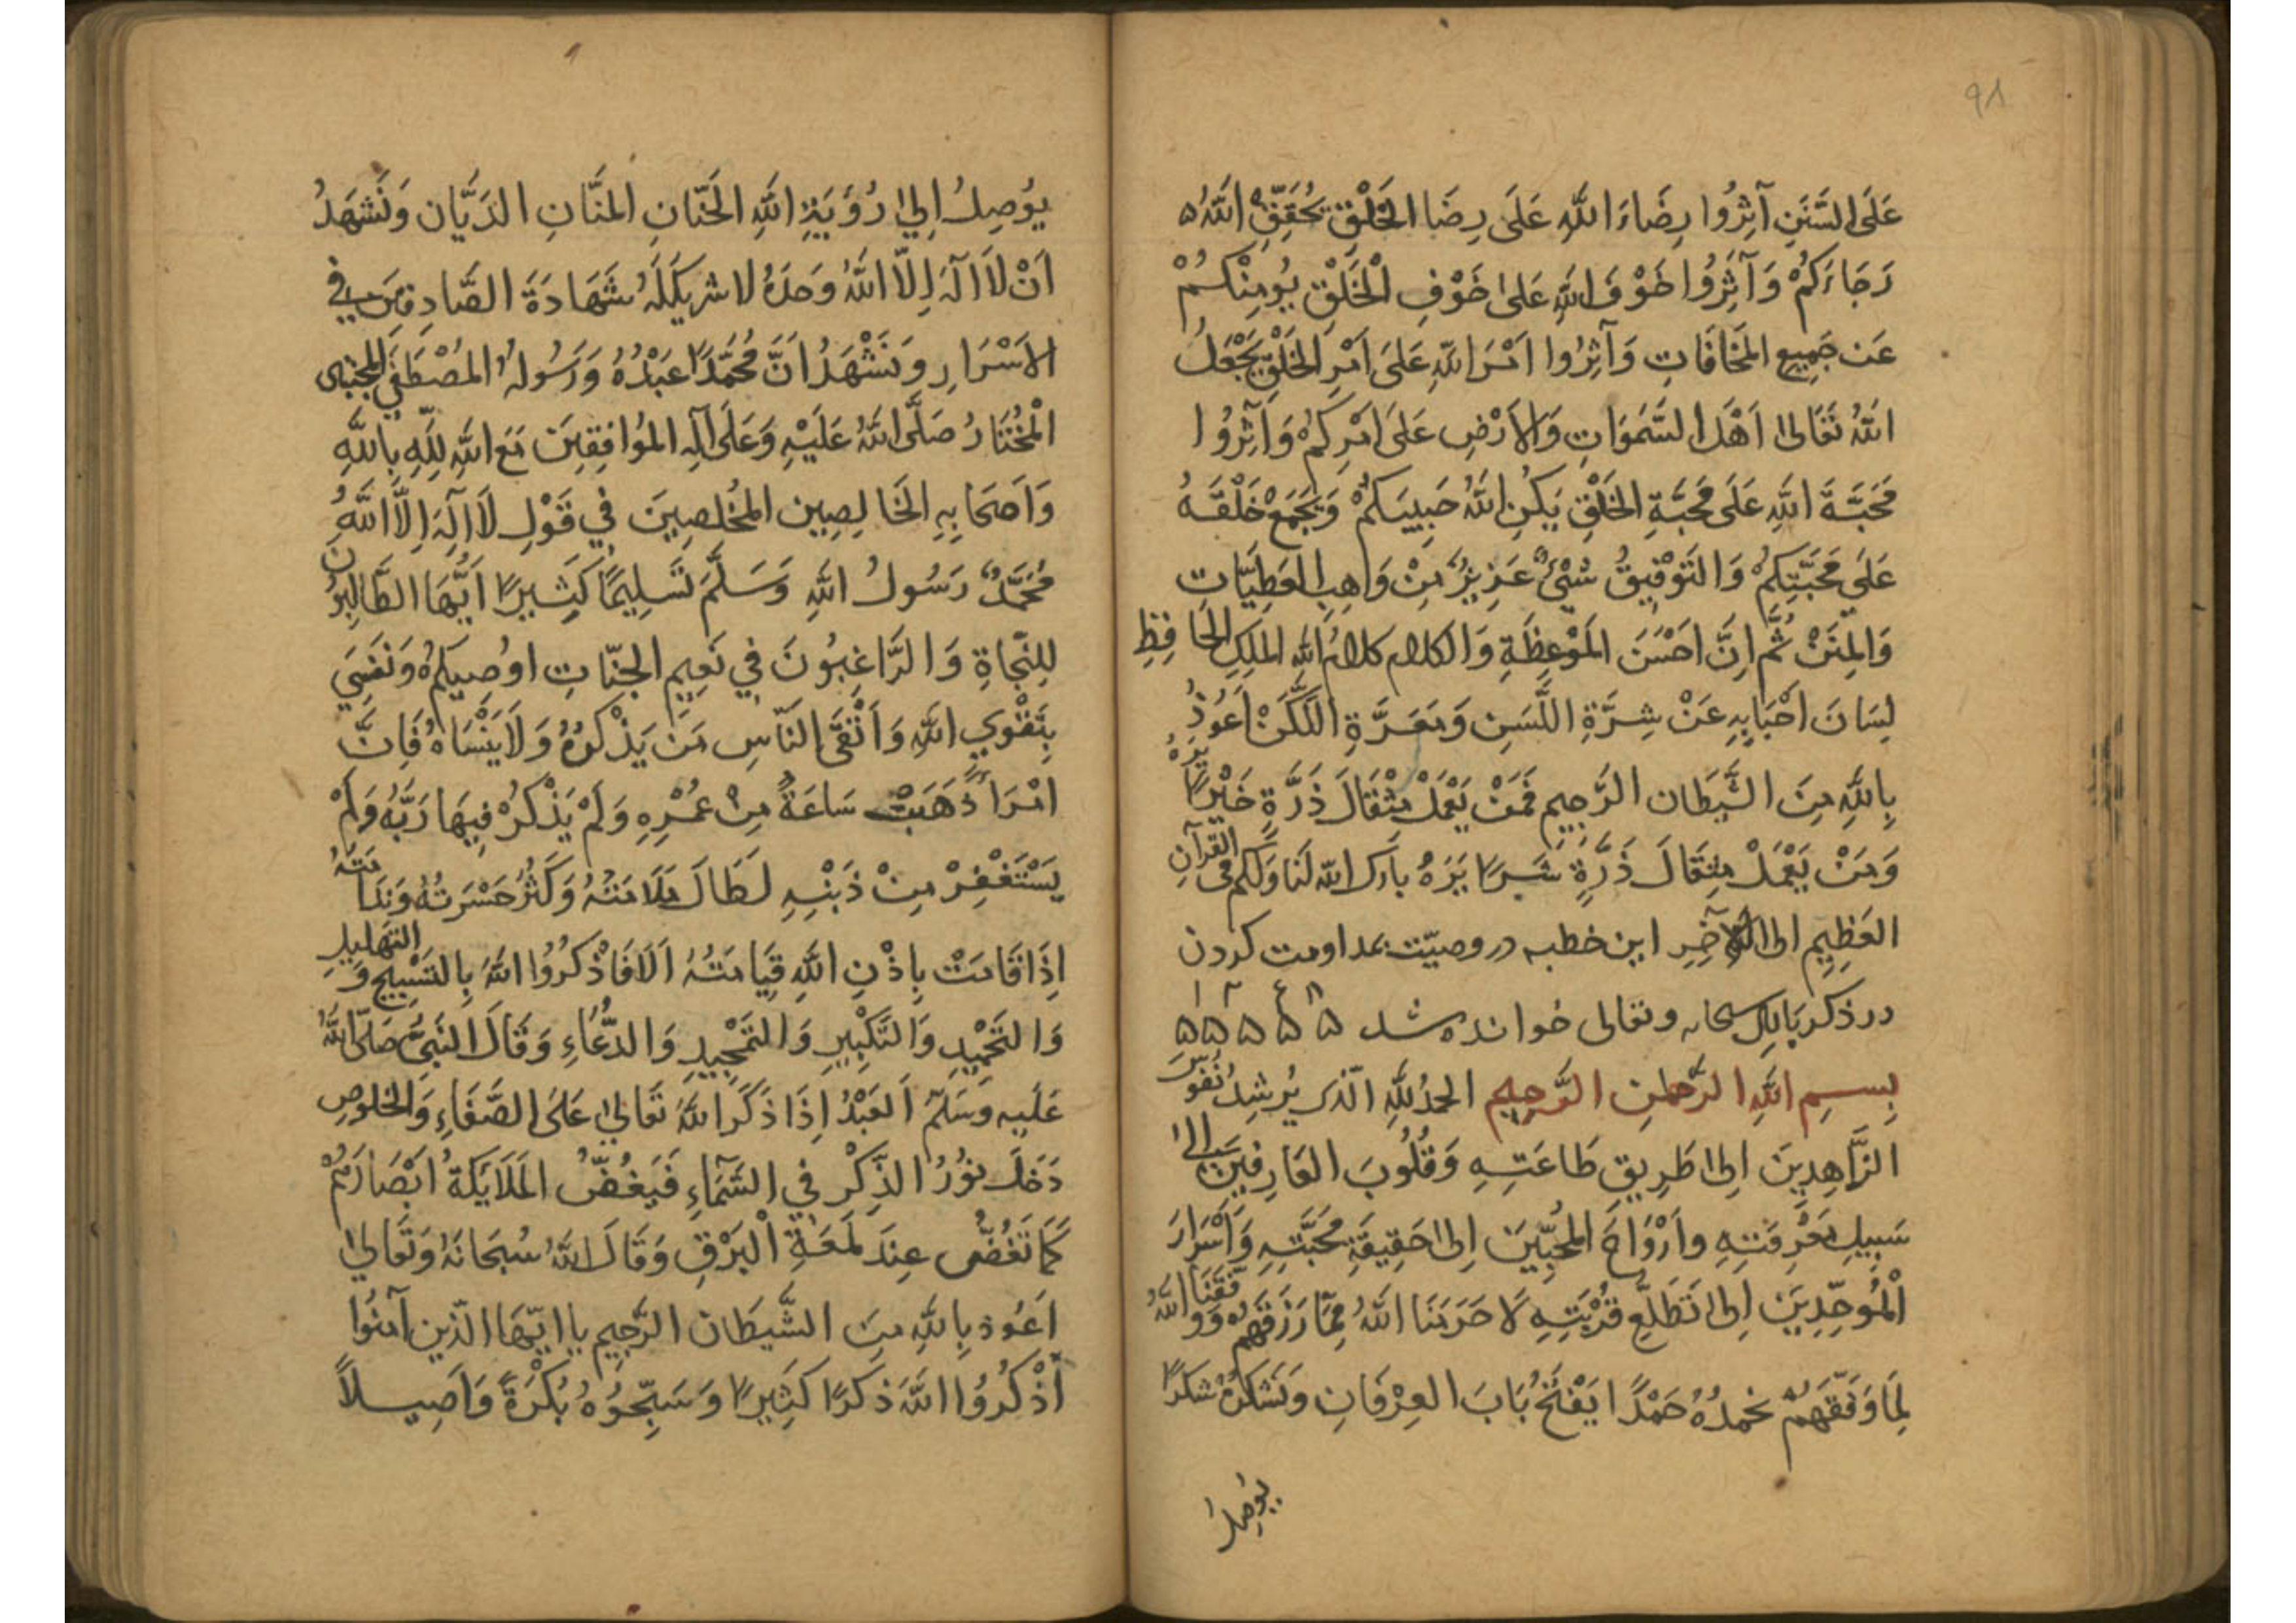 ٩٨
عَلَى السَّنَنِ آثِرُوا رِضَاءَ اللَّهِ عَلَى رِضَا الخَلْقِ يُحَقِّقِ اللَّهُ
رَجَاءَكُمْ وَآثِرُوا خَوْفَ اللَّهِ عَلىٰ خَوْفِ الْخَلْقِ يُومِنْكُمْ
عَن جَمِيعِ المَخَافَاتِ وَآثِرُوا اَمْرَ اللَّهِ عَلَى اَمْرِ الخَلْقِ يَجْعَلُ
اللَّهُ تَعَالىٰ اَهْلَ السَّمَوَاتِ وَالاَرْضِ عَلَى اَمْرِكُمْ وَآثِرُوا
مَحَبَّةَ اللَّهِ عَلَى مَحَبَّةِ الخَلْقِ يَكُنِ اللَّهُ حَبِيبَكُمْ وَيَجْمَعْ خَلْقَهُ
عَلَى مَحَبَّتِكُمْ وَالتَوْفِيقُ شَىْءٌ عَزِيزٌ مِنْ وَاهِبِ العَطِيَّاتِ
وَالمِنَنْ ثُمَّ اِنَّ اَحْسَنَ المَوْعِظَةِ وَالكلام كلامُ اللَّهِ المَلِكِ الحَافِظِ
لِسَانَ اَحْبَابِهِ عَنْ شِرَّةِ اللَّسَنِ وَمَعَرَّةِ اللَّكَنْ اَعُوذُ
بِاللَّهِ مِنَ الشَّيطَان الرَّجِيم فَمَنْ يَعْمَلْ مِثْقَالَ ذَرَّةٍ خَيْرًا يَرَهُ
وَمَنْ يَعْمَلْ مِثقَالَ ذَرَّةٍ شَرًا يَرَهُ بارك اللّه لَنا وَلكم فى القرآنِ
العَظِيمِ الى الآخِرِ این خطبه در وصیّت بمداومت کردن
در ذکر سبحانه وتعالى خوانده شد ۵ ۵ ۵ ۵ ۵
بِسمِ اللَّهِ الرَّحمٰنِ الرَّحِيمِ الحمدُ للّٰهِ الّذى يُرشِدُ نُفُوسَ
الزَّاهِدِينَ اِلىٰ طَرِيقِ طَاعَتِهِ وَقُلُوبَ العَارِفِينَ اِلىٰ
سَبِيلِ مَعْرِفَتِهِ واَرْوَاحَ المُحِبِّينَ اِلىٰ حَقِيقَةِ مَحَبَّتِهِ وَاَسْرَارَ
الْمُوَحِّدِينَ اِلىٰ تَطَلُّعِ قُرْبَتِهِ لَا حَرَمَنَا اللَّهُ مِمَّا رَزَقَهُمْ وَوَفَّقَنَا اللَّهُ
لِمَا وَفَّقَهُمْ نَحْمدُهُ حَمْدًا يَفْتَحُ بَابَ العِرْفَانِ وَنَشكرُهُ شكرًا
يُوصِلُ
يُوصِلُ اِلىٰ رُؤيَةِ اللَّهِ الحَنّانِ المَنَّانِ الدَيَّان وَنَشْهَدُ
اَنْ لَا اِلَهَ اِلَّا اللَّهُ وَحدَهُ لا شريكَ لَهُ شَهَادَةَ الصَّادِقِينَ فِي
الاَسْرَارِ وَنَشْهَدُ اَنَّ مُحَمَّدًا عَبْدُهُ وَرَسُولُهُ المُصْطَفَى المجتبى
الْمُخْتَارُ صَلَّى اللَّهُ عَلَيْهِ وَعَلَى آلِهِ المُوافِقِينَ مَعَ اللَّهِ لِلَّهِ بِاللَّهِ
وَاَصحَابِهِ الخَالِصِين المُخْلصِينَ فِي قَوْلِ لَا اِلَهَ اِلَّا اللَّهُ
مُحَمَّدٌ رَسُولُ اللَّهِ وَسَلَّمَ تَسلِيمًا كَثِيرًا اَيُّهَا الطَّالِبُونَ
لِلنَّجَاةِ وَالرَّاغِبُونَ فِي نَعِيمِ الجَنّاتِ اوُصِيكمْ وَنَفسِي
بِتَقْوٰي اللَّهِ وَاَتْقَى النَّاسِ مَن يَذْكرُهُ وَلَا يَنْسَاهُ فَاِنَّ
امْرَأً ذَهَبَتْ سَاعَةٌ مِنْ عُمْرِهِ وَلَمْ يَذْكُرْ فِيهَا رَبَّهُ وَلَمْ
يَسْتَغْفِرْ مِنْ ذَنْبِهِ لَطَالَ مَلَامَتُهُ وَكَثُرَ حَسْرَتُهُ وَنَدَامَتُهُ
اِذَا قَامَتْ بِاِذْنِ اللَّهِ قِيَامَتُهُ اَلَا فَاذْكُرُوا اللَّهَ بِالتَسْبِيحِ وَالتَهلِيلِ
وَالتَحْمِيدِ وَالتَكْبِيرِ وَالتَمْجِيدِ وَالدُّعَاءِ وَقَالَ النَبِيُّ صَلّى اللَّهُ
عَلَيهِ وَسَلَّمَ اَلعَبْدُ اِذَا ذَكَرَ اللَّهَ تَعَالىٰ عَلَى الصَّفَاءِ وَالخلوصِ
دَخَلَ نوُرُ الذِّكْرِ فِي السَّمَاءِ فَيَغُضُّ المَلَايَكَةُ اَبْصَارَهُمْ
كَمَا تَغُضُّ عِندَ لَمعَةِ الْبَرْقِ وَقَالَ اللَّهُ سُبحَانَهُ وَتَعَالىٰ
اَعُوذ بِاللَّهِ مِنَ الشَّيطَان الرَّجِيمِ يا ايّهَا الّذين آمَنُوا
اذْكُرُوا اللَّهَ ذكرًا كَثِيرًا وَسَبِّحُوهُ بُكْرَةً وَاَصِيلاً